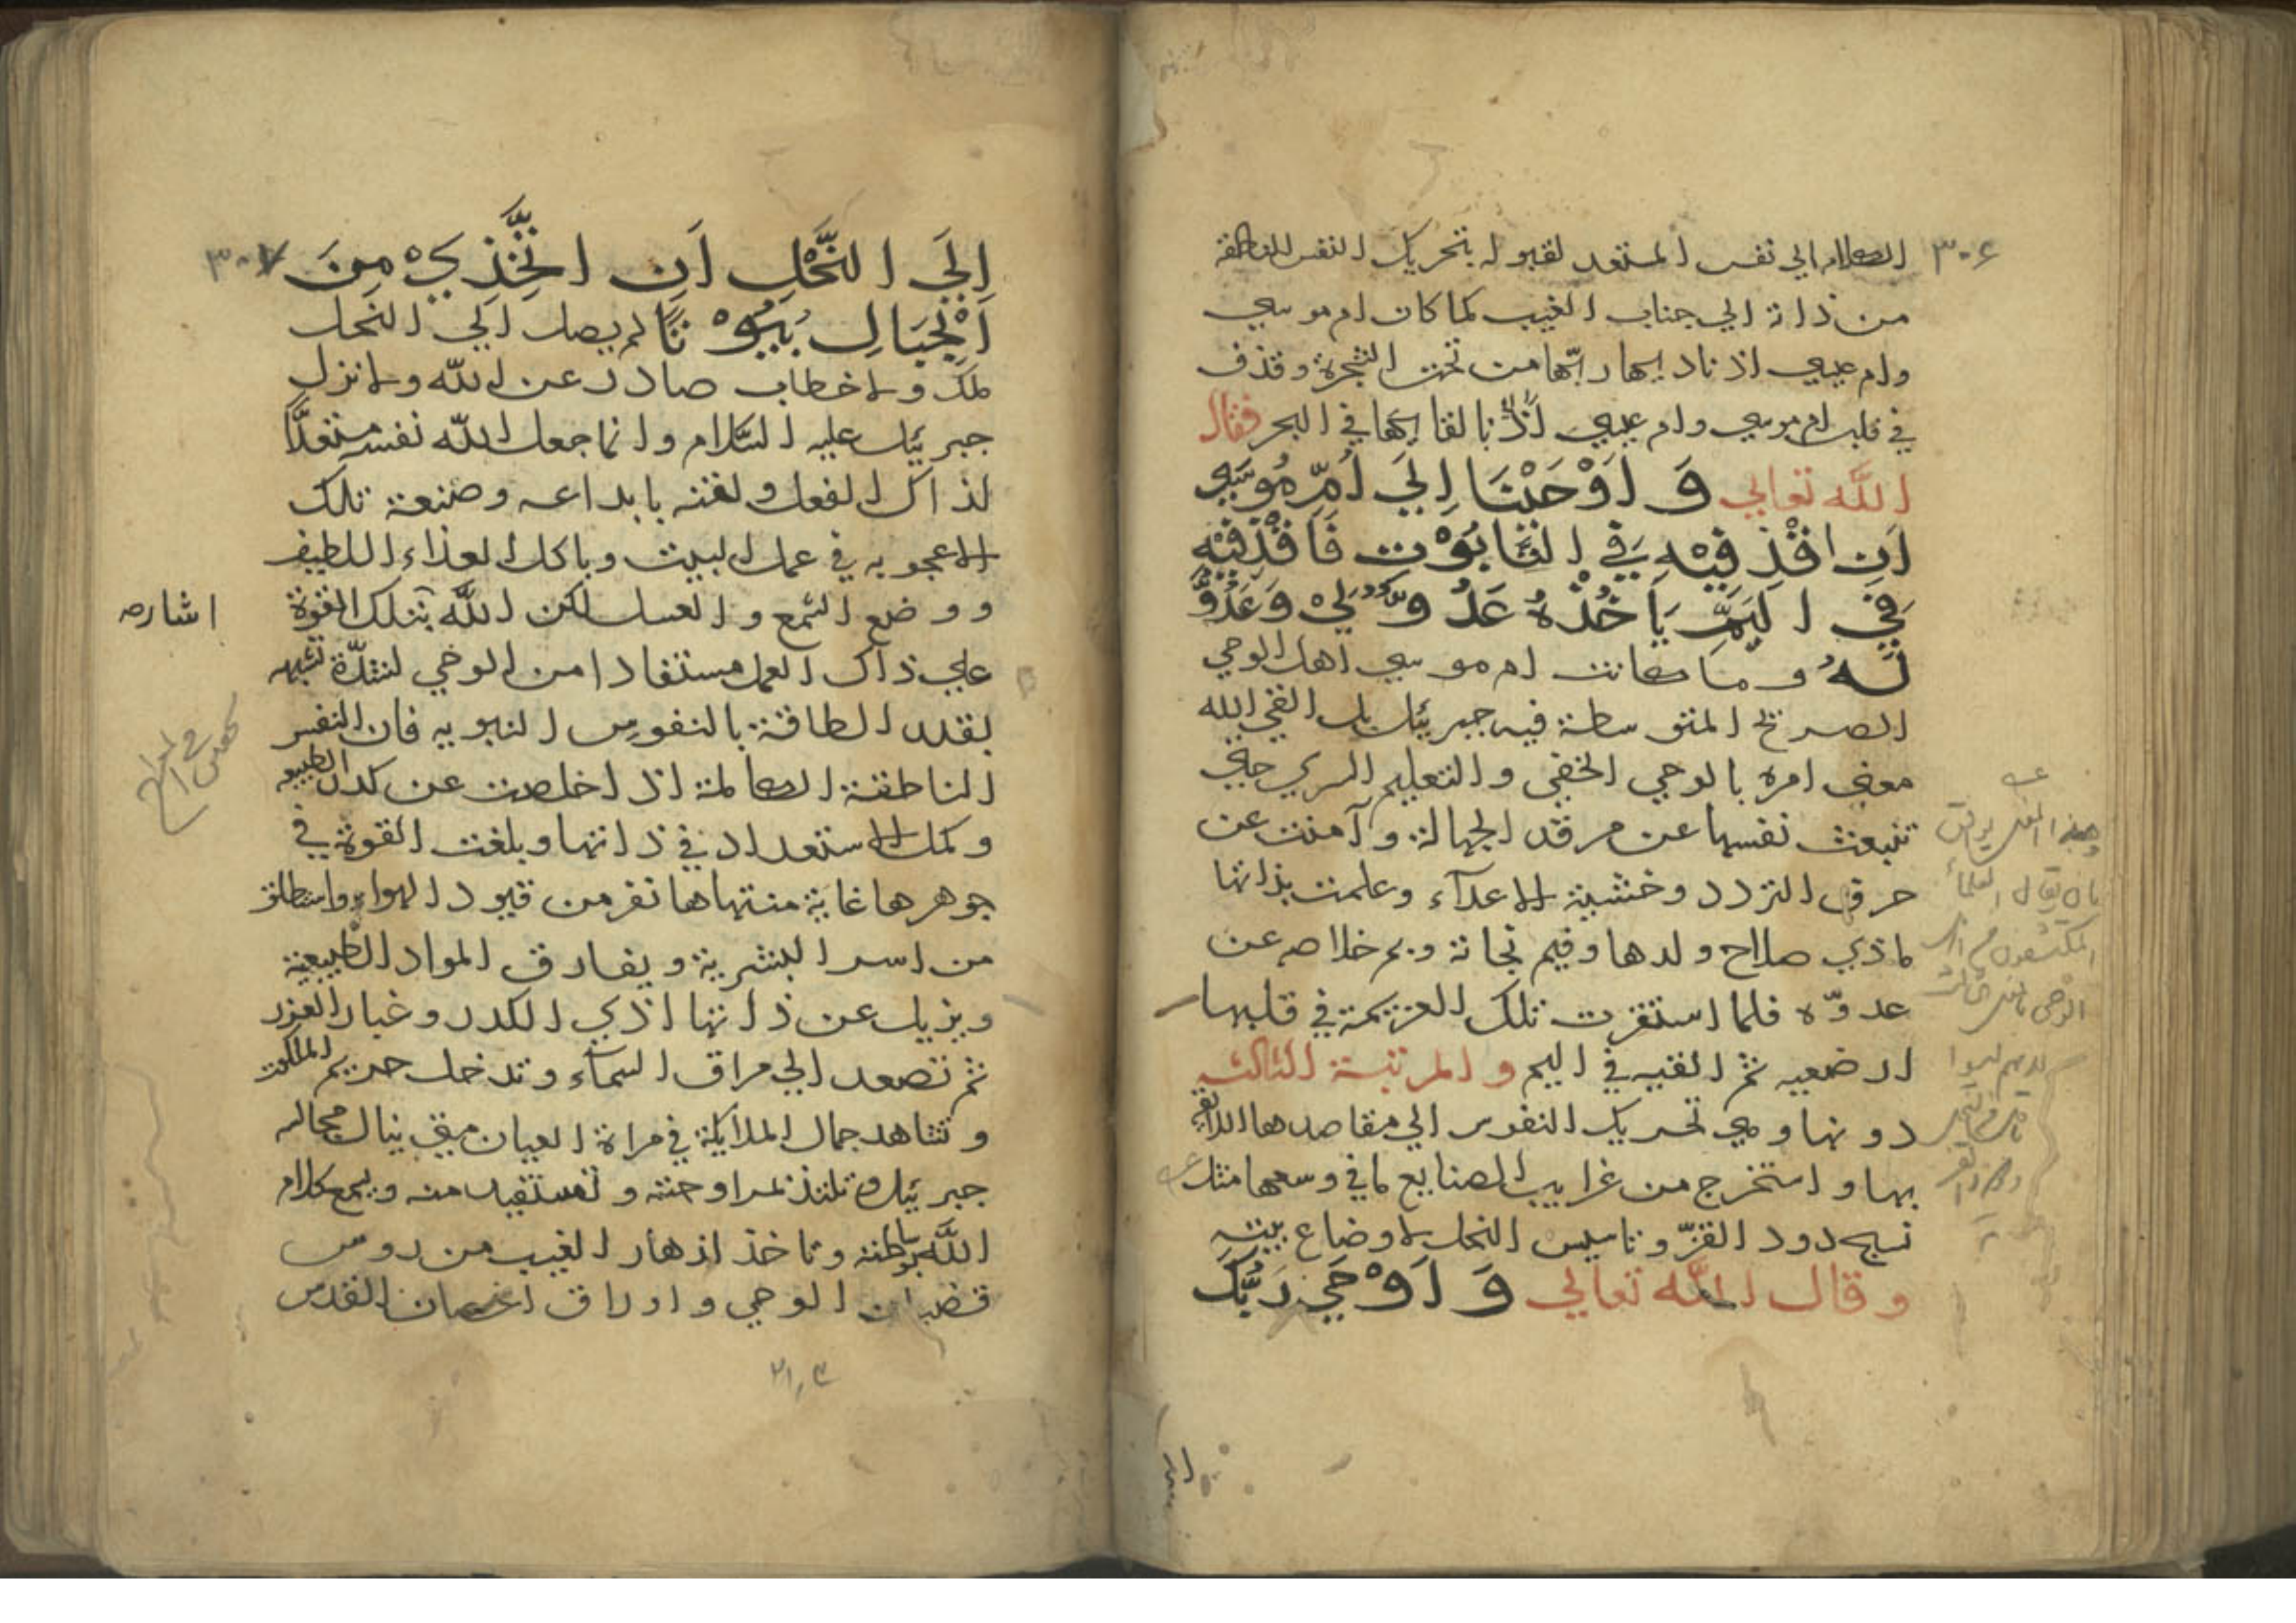 ٣٠٦
الكلام الي نفس المستعد لقبوله بتحريك النفس الناطقة
من ذاته الي جناب الغيب كما كان ام موسي
وام عيسي اذ ناديها ربّها من تحت الشجرة وقذف
في قلب ام موسي وام عيسي بالقائها في البحر فقال
اللّه تعالي وَ اَوْحَيْنَا اِلَي اُمِّ مُوْسَي
اَنِ اقْذِفِيْهِ فِي التَّابُوْتِ فَاقْذِفِيْهِ
فِي الْيَمِّ يَاْخُذْهُ عَدُوٌّ لِيْ وَعَدُوٌّ
لَهُ وما كانت ام موسي اهل الوحي
الصريح المتوسطة فيه جبرئيل بل القي الله
معني امره بالوحي الخفي والتعليم السري حتي
تنبعث نفسها عن مرقد الجهالة وآمنت عن
حرق التردد وخشية الاعدآء وعلمت بذاتها
ماذي صلاح ولدها وفيم نجاته وبم خلاصه عن
عدوّه فلما استقرت تلك العزيمة في قلبها
ارضعيه ثم القيه في اليم والمرتبة الثالثة
دونها وهي تحريك النفوس الي مقاصدها اللائقة
بها واستخرج من غرايب الصنايع ما في وسعها مثل
نسج دود القزّ وتاسيس النحل لاوضاع بيته
وقال اللّه تعالي وَ اَوْحَي رَبُّكَ
٣٠٧
اِلَي النَّحْلِ اَنِ اتَّخِذِيْ مِنَ
الْجِبَالِ بُيُوْتًا لم يصل الي النحل
ملك ولا خطاب صادر عن اللّه ولا نزل
جبرئيل عليه السّلام وانما جعل اللّه نفسه مستعدًّا
لذاك الفعل ولقنه بابداعه وصنعة تلك
الاعجوبه في عمل البيت وباكل الغذاء اللطيف
ووضع الشمع والعسل لكن اللّه بتلك القوة
اشاره
علي ذاك العمل مستفادا من الوحي لشدّة تشبهه
بقدر الطاقة بالنفوس النبويه فان النفس
الناطقة الكاملة اذا خلصت عن كدر الطبيعه
وكمل الاستعداد في ذاتها وبلغت القوة في
جوهرها غاية منتهاها تفر من قيود الهواء واستطلق
من اسر البشرية ويفارق المواد الطبيعية
ويزيل عن ذاتها اذي الكدر وغبار
ثم تصعد الي مراق السمآء وتدخل حريم الملكوت
وتشاهد جمال الملائكة في مراة العيان
جبرئيل وتلتذ وتستفيد منه ويسمع كلام
اللّه بباطنه وتاخذ ازهار الغيب من روس
قضبان الوحي واوراق اغصان القدس